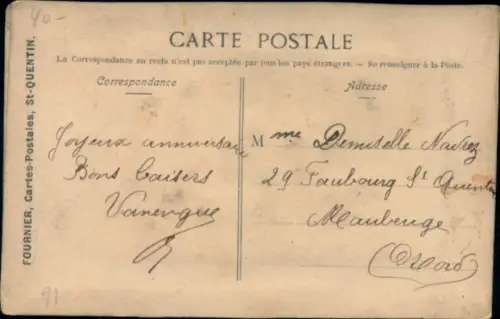 40-
CARTE POSTALE
La Correspondance au recto n'est pas acceptée par tous les pays étrangers. - Se renseigner à la Poste.
Correspondance
Adresse
Joyeux anniversaire
Bons baisers
Mme Demiselle
29 Faubourg St Quentin
Maubeuge
(Nord)
FOURNIER, Cartes-Postales, St-QUENTIN.
91